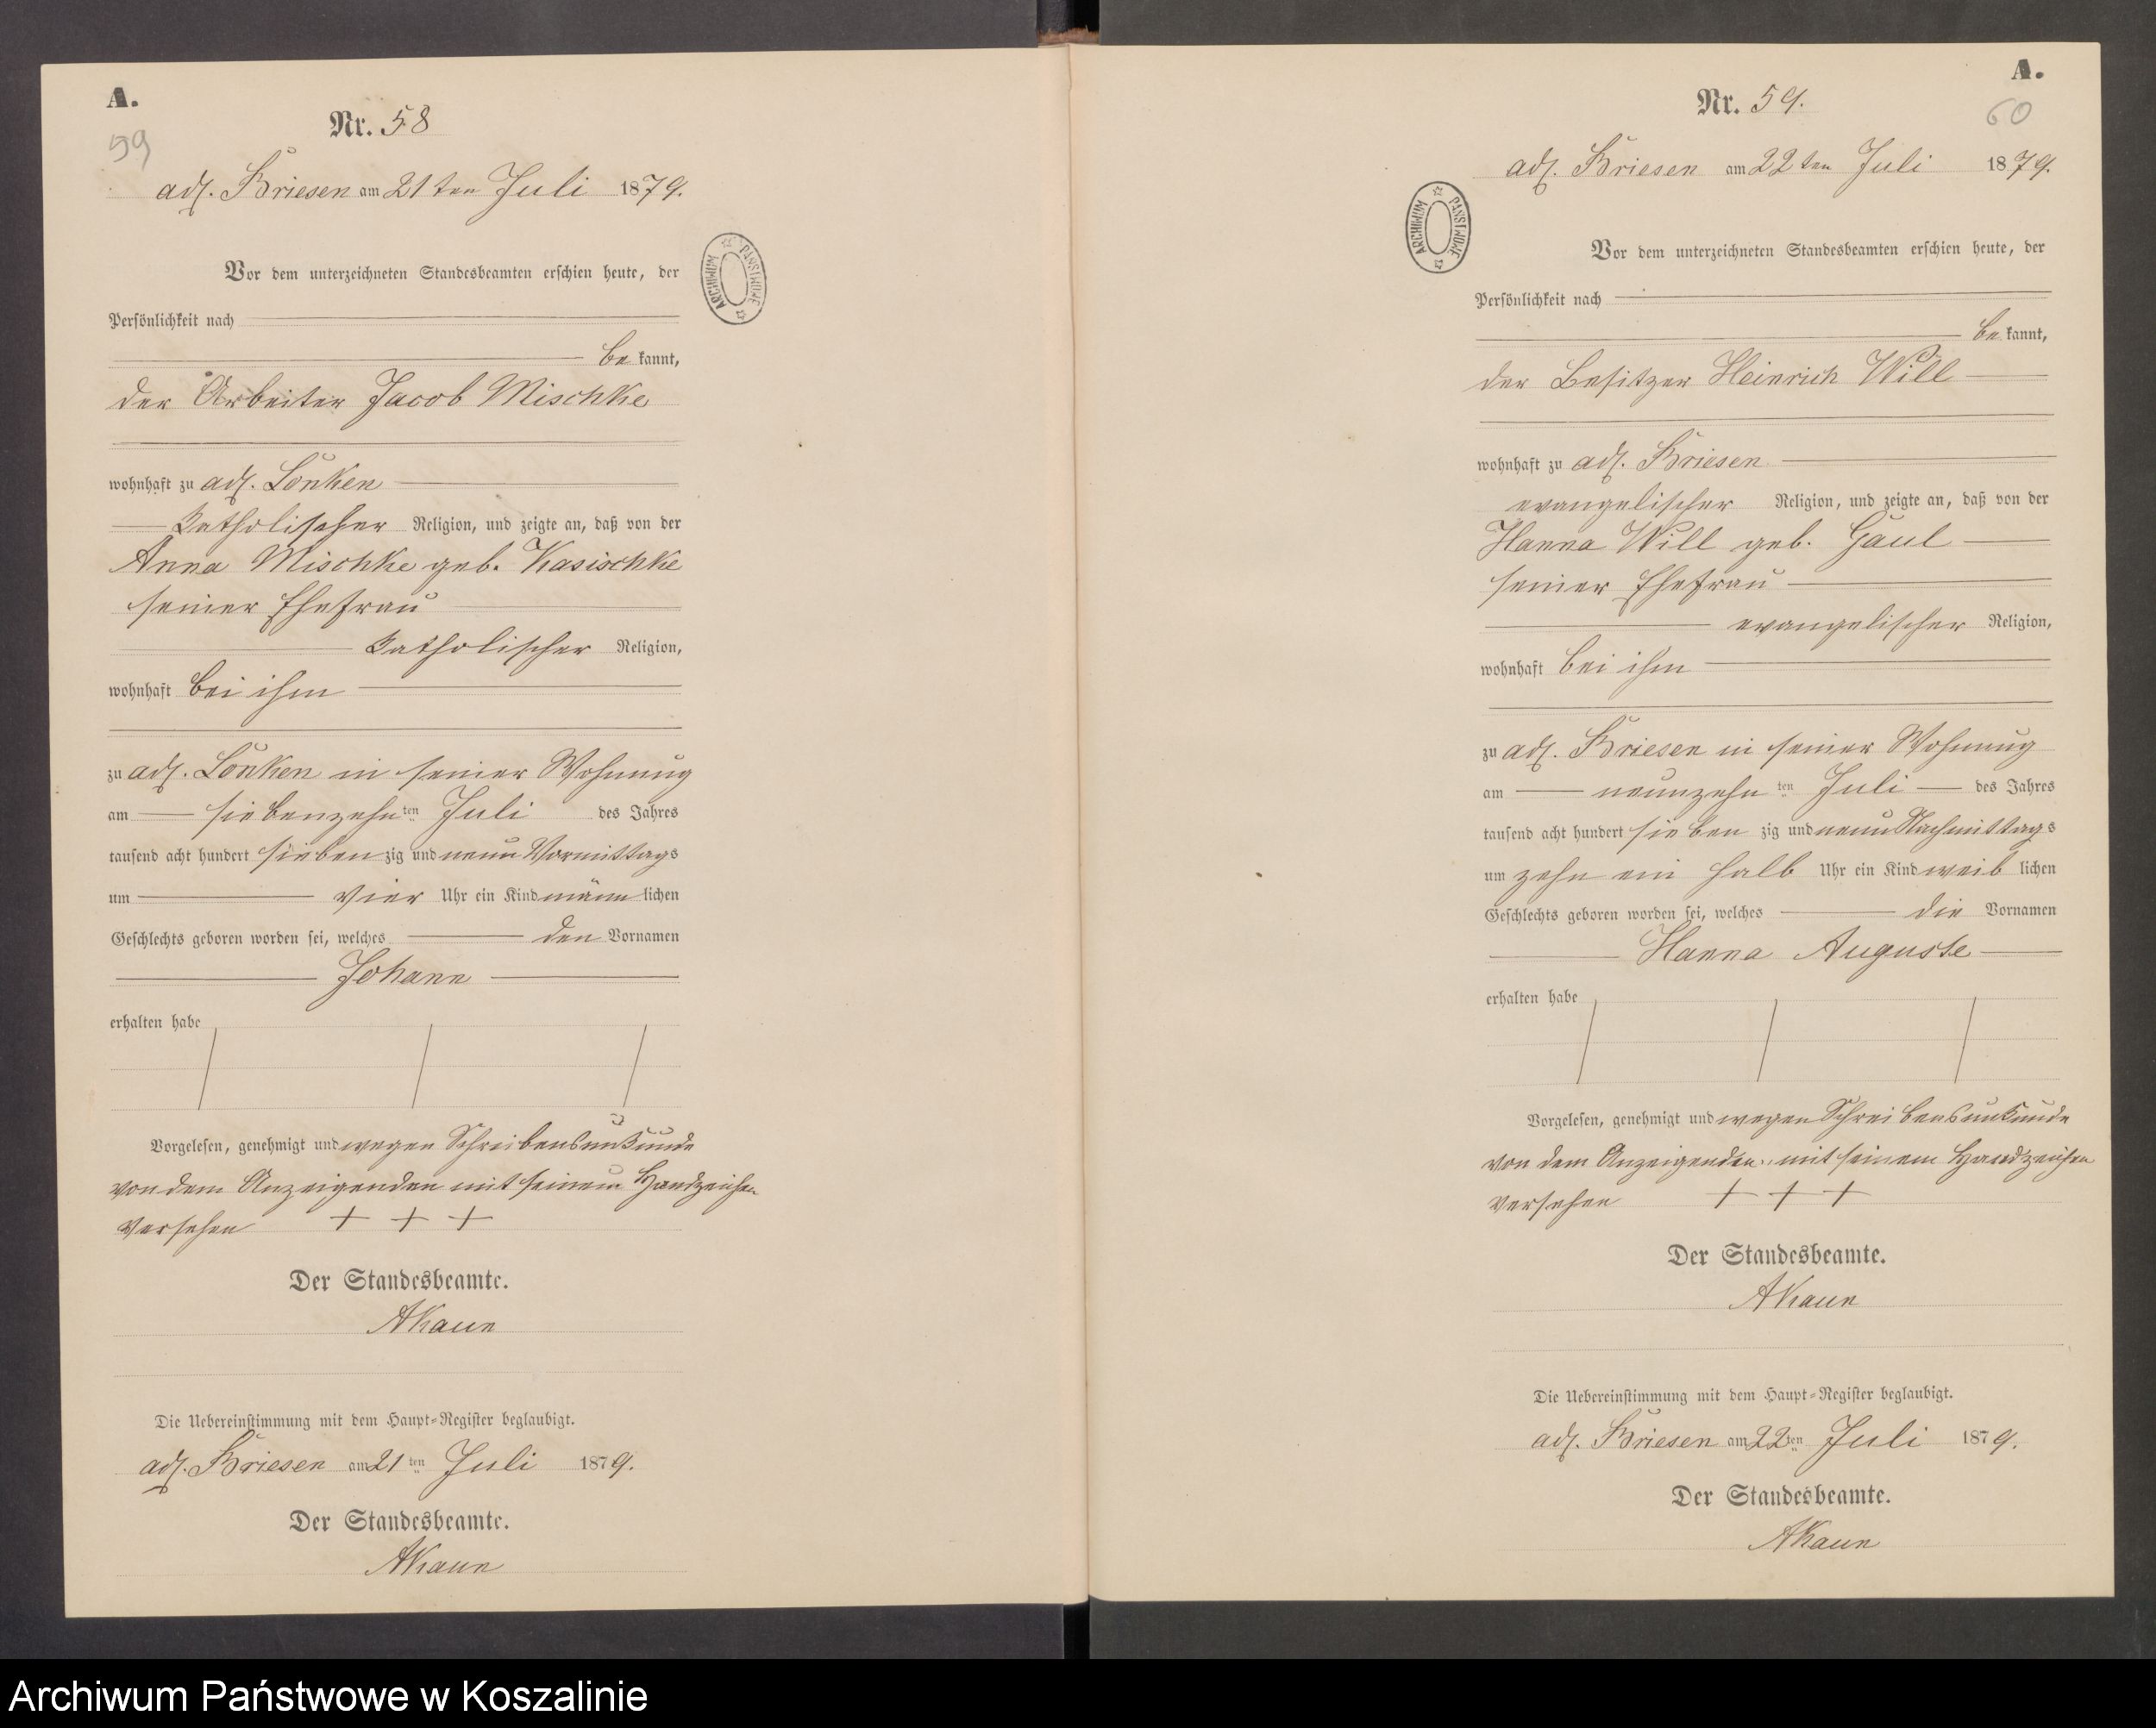 A.
59
Nr. 58
adl. Briesen am 21ten Juli 1879.
Vor dem unterzeichneten Standesbeamten erschien heute, der
Persönlichkeit nach
be kannt,
der Arbeiter Jacob Mischke
wohnhaft zu adl. Lonken
katholischer Religion, und zeigte an, daß von der
Anna Mischke geb. Kasischke
seiner Ehefrau
katholischer Religion,
wohnhaft bei ihm
zu adl. Lonken in seiner Wohnung
am siebenzehn ten Juli des Jahres
tausend acht hundert sieben zig und neun Vormittags
um vier Uhr ein Kind männ lichen
Geschlechts geboren worden sei, welches den Vornamen
Johann
erhalten habe
Vorgelesen, genehmigt und wegen Schreibensunkunde
von dem Anzeigenden mit seinem Handzeichen
versehen + + +
Der Standesbeamte.
AKaun
Die Uebereinstimmung mit dem Haupt-Register beglaubigt.
adl. Briesen am 21 ten Juli 1879.
Der Standesbeamte.
AKaun
ARCHIWUM PAŃSTWOWE
A.
60
Nr. 59.
adl. Briesen am 22ten Juli 1879.
ARCHIWUM PAŃSTWOWE
Vor dem unterzeichneten Standesbeamten erschien heute, der
Persönlichkeit nach
be kannt,
der Besitzer Heinrich Will
wohnhaft zu adl. Briesen
evangelischer Religion, und zeigte an, daß von der
Hanna Will geb. Gaul
seiner Ehefrau
evangelischer Religion,
wohnhaft bei ihm
zu adl. Briesen in seiner Wohnung
am neunzehn ten Juli des Jahres
tausend acht hundert sieben zig und neun Nachmittags
um zehn ein halb Uhr ein Kind weib lichen
Geschlechts geboren worden sei, welches die Vornamen
Hanna Auguste
erhalten habe
Vorgelesen, genehmigt und wegen Schreibensunkunde
von dem Anzeigenden mit seinem Handzeichen
versehen + + +
Der Standesbeamte.
AKaun
Die Uebereinstimmung mit dem Haupt-Register beglaubigt.
adl. Briesen am 22 ten Juli 1879.
Der Standesbeamte.
AKaun
Archiwum Państwowe w Koszalinie